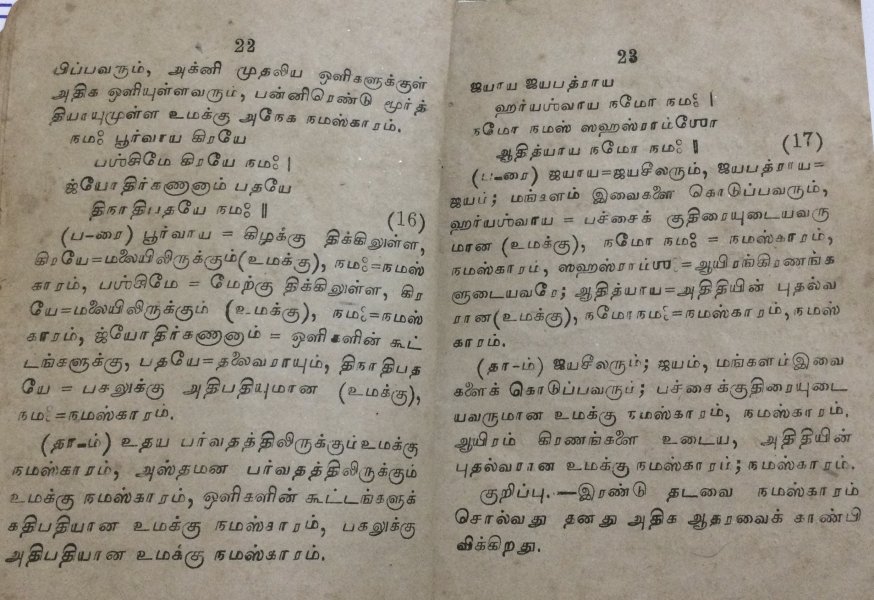 22
பிப்பவரும், அக்னி முதலிய ஒளிகளுக்குள்
அதிக ஒளியுள்ளவரும், பன்னிரெண்டு மூர்த்
தியாயுமுள்ள உமக்கு அநேக நமஸ்காரம்.
நமஃ பூர்வாய கிரயே
பஶ்சிமே கிரயே நமஃ |
ஜ்யோதிர்கணானாம் பதயே
திநாதிபதயே நமஃ ‖ (16)
(ப-ரை) பூர்வாய = கிழக்கு திக்கிலுள்ள,
கிரயே=மலையிலிருக்கும்(உமக்கு), நமஃ=நமஸ்
காரம், பஶ்சிமே = மேற்கு திக்கிலுள்ள, கிர
யே=மலையிலிருக்கும் (உமக்கு), நமஃ=நமஸ்
காரம், ஜ்யோதிர்கணானாம் = ஒளிகளின் கூட்
டங்களுக்கு, பதயே=தலைவராயும், திநாதிபத
யே = பகலுக்கு அதிபதியுமான (உமக்கு),
நமஃ=நமஸ்காரம்.
(தா-ம்) உதய பர்வதத்திலிருக்கும்உமக்கு
நமஸ்காரம், அஸ்தமன பர்வதத்திலிருக்கும்
உமக்கு நமஸ்காரம், ஒளிகளின் கூட்டங்களுக்
கதிபதியான உமக்கு நமஸ்காரம், பகலுக்கு
அதிபதியான உமக்கு நமஸ்காரம்.
23
ஜயாய ஜயபத்ராய
ஹர்யஶ்வாய நமோ நமஃ |
நமோ நமஸ் ஸஹஸ்ராம்ஶோ
ஆதித்யாய நமோ நமஃ ‖ (17)
(ப-ரை) ஜயாய=ஜயசீலரும், ஜயபத்ராய=
ஜயம்; மங்களம் இவைகளை கொடுப்பவரும்,
ஹர்யஶ்வாய = பச்சைக் குதிரையுடையவரு
மான (உமக்கு), நமோ நமஃ = நமஸ்காரம்,
நமஸ்காரம், ஸஹஸ்ராம்ஶோ=ஆயிரங்கிரணங்க
ளுடையவரே; ஆதித்யாய=அதிதியின் புதல்வ
ரான(உமக்கு), நமோநமஃ=நமஸ்காரம், நமஸ்
காரம்.
(தா-ம்) ஜயசீலரும்; ஜயம், மங்களம்இவை
களைக் கொடுப்பவரும்; பச்சைக்குதிரையுடை
யவருமான உமக்கு நமஸ்காரம், நமஸ்காரம்.
ஆயிரம் கிரணங்களை உடைய, அதிதியின்
புதல்வரான உமக்கு நமஸ்காரம்; நமஸ்காரம்.
குறிப்பு.—இரண்டு தடவை நமஸ்காரம்
சொல்வது தனது அதிக ஆதரவைக் காண்பி
விக்கிறது.